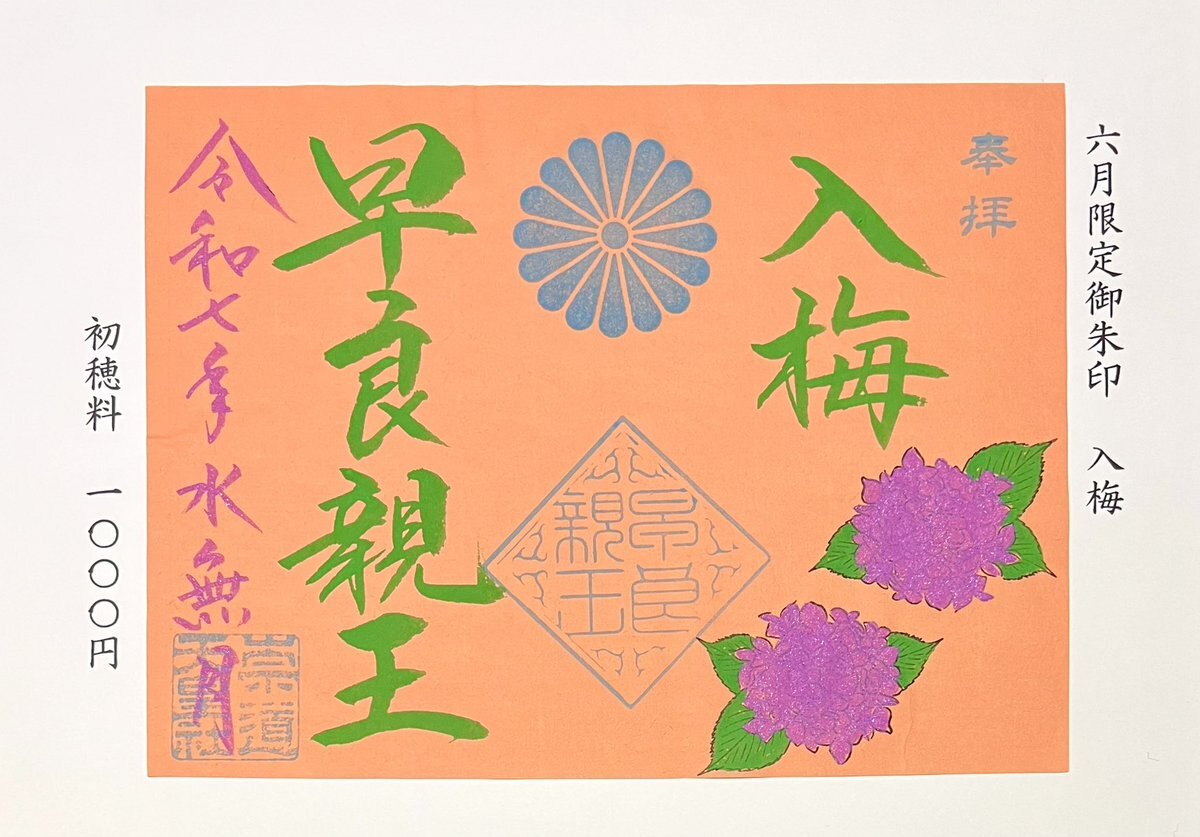 六月限定御朱印 入梅
奉拝
入梅
早良親王
早良親王
令和七年水無月
崇道天皇社
初穂料 一〇〇〇円